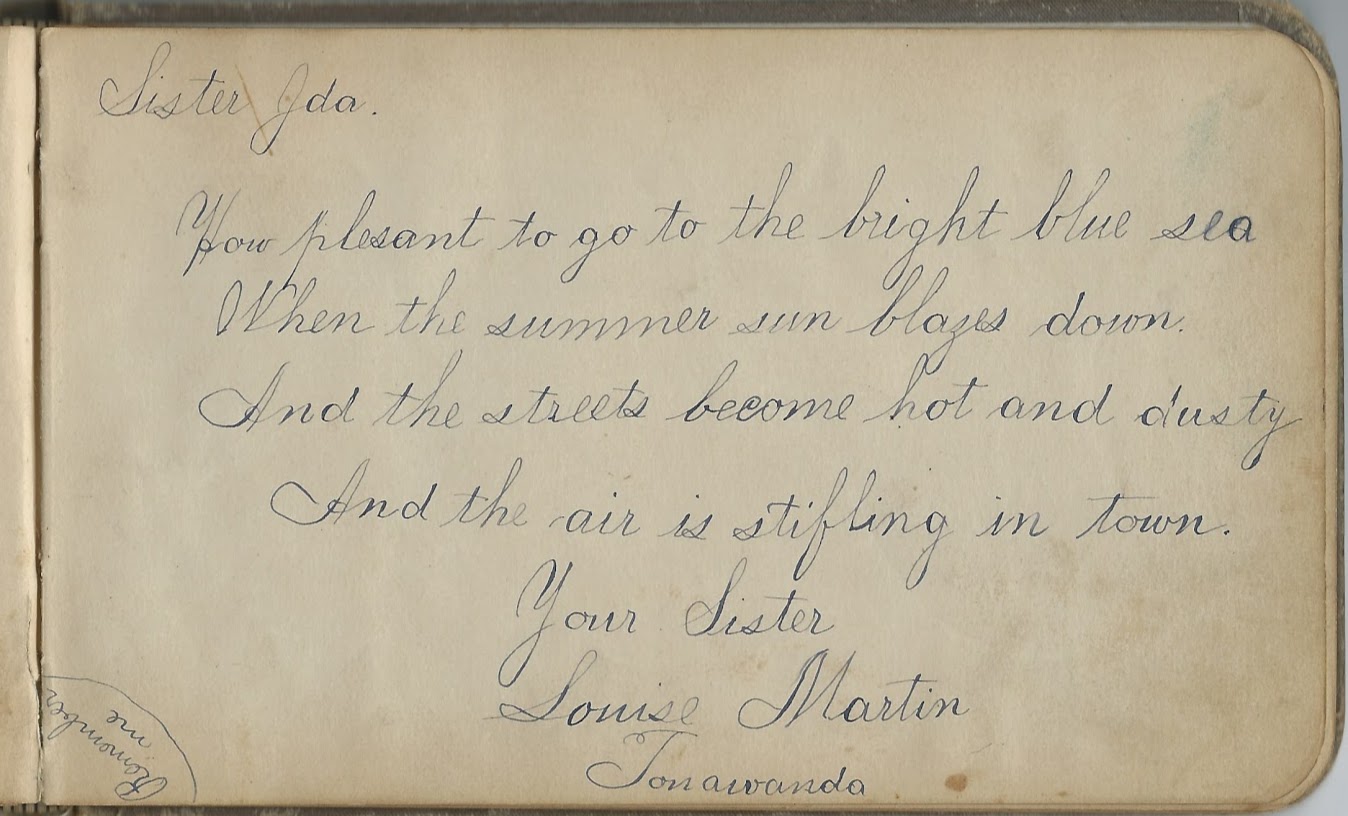 Sister Ida.
How plesant to go to the bright blue sea
When the summer sun blazes down.
And the streets become hot and dusty
And the air is stifling in town.
Your Sister
Louise Martin
Tonawanda
Remember
me